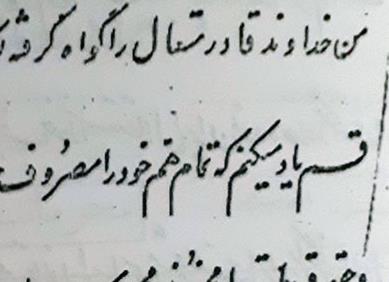 من خداوند قادر متعال را گواه گرفته
قسم یاد میکنم که تمام هم خود را مصروف